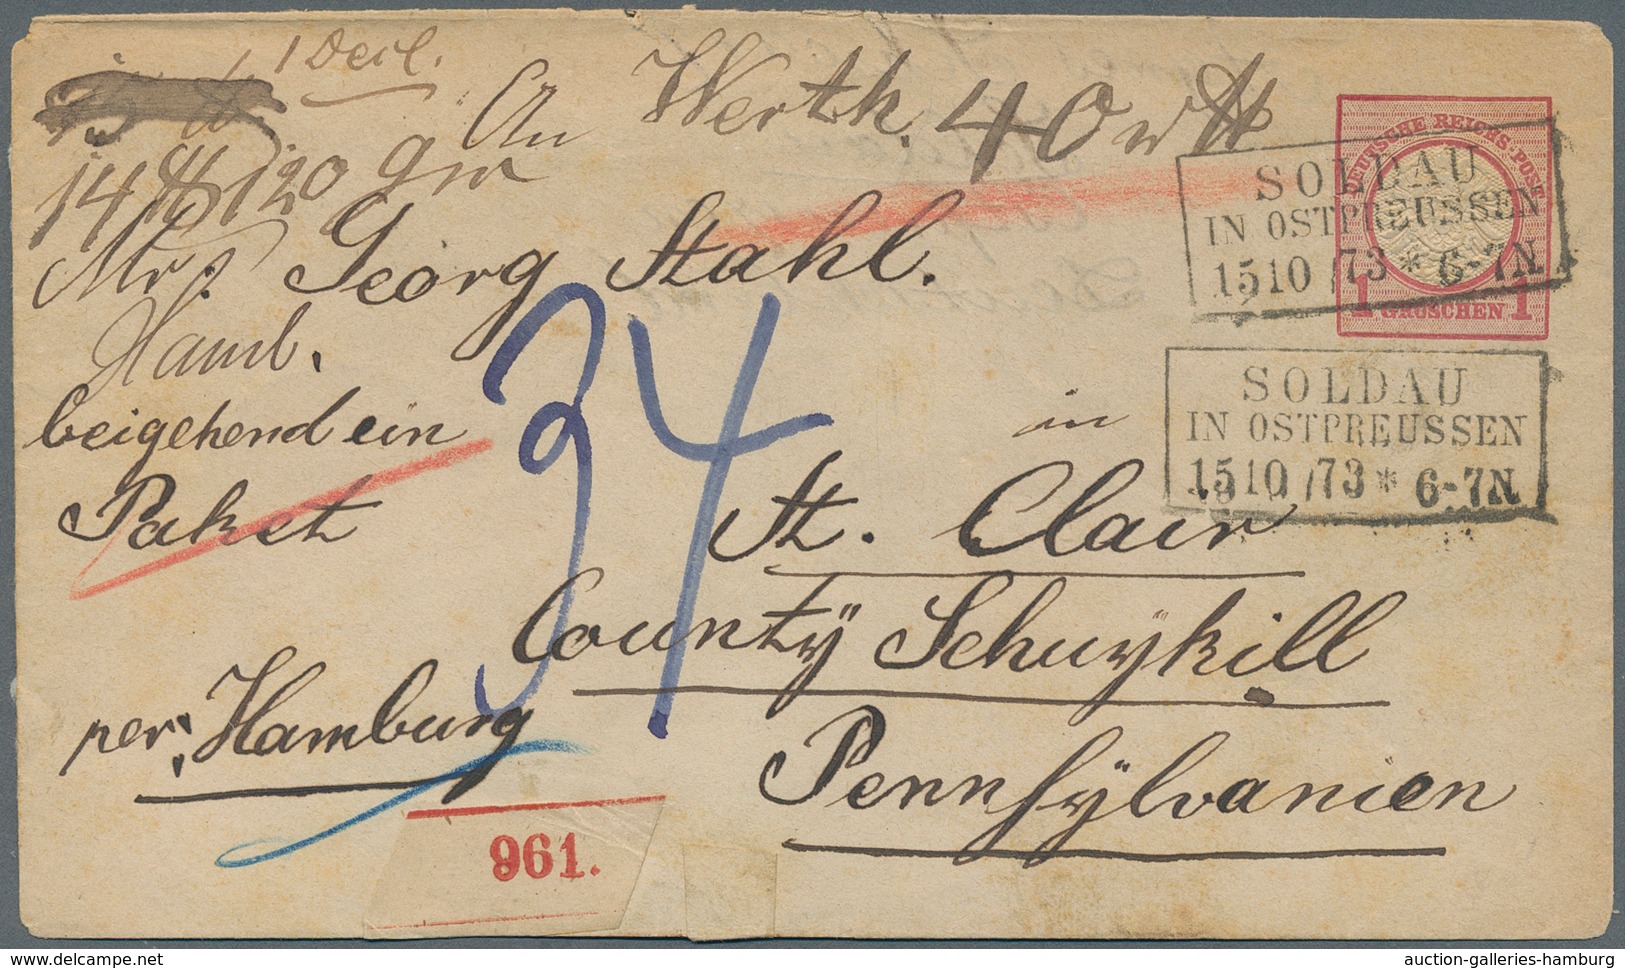 1 Decl.
An Werth. 40 rt
14 ℔ 120 gm
Mr. Georg Stahl.
Hamb.
beigehend ein
Paket
34
in
St. Clair
County Schuykill
per: Hamburg
Pennsylvanien
961.
DEUTSCHE REICHS-POST
1 GROSCHEN 1
SOLDAU
IN OSTPREUSSEN
15 10 /73 * 6-7N
SOLDAU
IN OSTPREUSSEN
15 10 /73 * 6-7N
delcampe.net
auction-galleries-hamburg